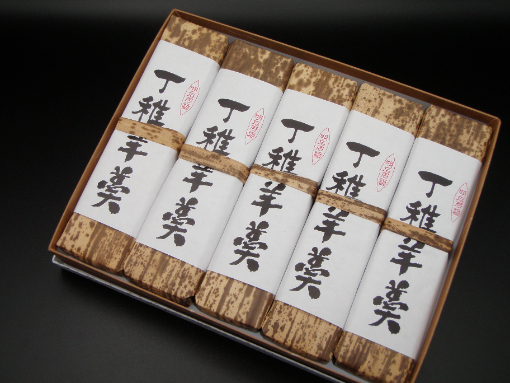 丁稚羊羹
丁稚羊羹
丁稚羊羹
丁稚羊羹
丁稚羊羹